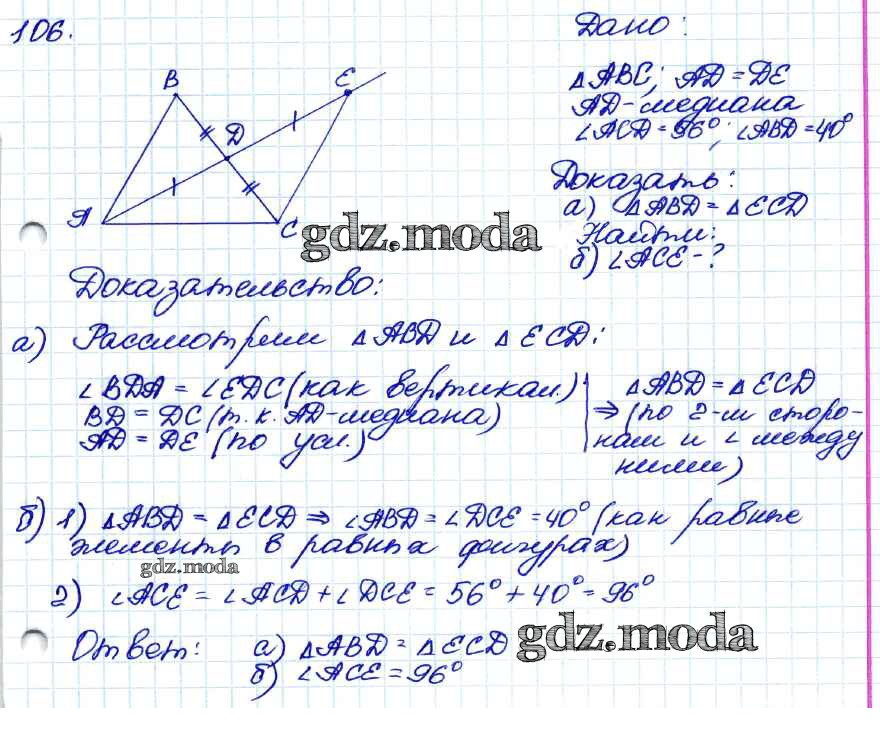 106.
Дано:
△ABC; AD = DE
AD - медиана
∠ACD = 56°; ∠ABD = 40°
Доказать:
а) △ABD = △ECD
Найти:
б) ∠ACE - ?
B
E
D
A
C
gdz.moda
Доказательство:
а) Рассмотрим △ABD и △ECD:
∠BDA = ∠EDC (как вертикал.)
BD = DC (т.к. AD-медиана)
AD = DE (по усл.)
△ABD = △ECD
⇒ (по 2-м сторо-
нам и ∠ между
ними)
б) 1) △ABD = △ECD ⇒ ∠ABD = ∠DCE = 40° (как равные
элементы в равных фигурах)
gdz.moda
2) ∠ACE = ∠ACD + ∠DCE = 56° + 40° = 96°
Ответ: а) △ABD = △ECD
б) ∠ACE = 96°
gdz.moda